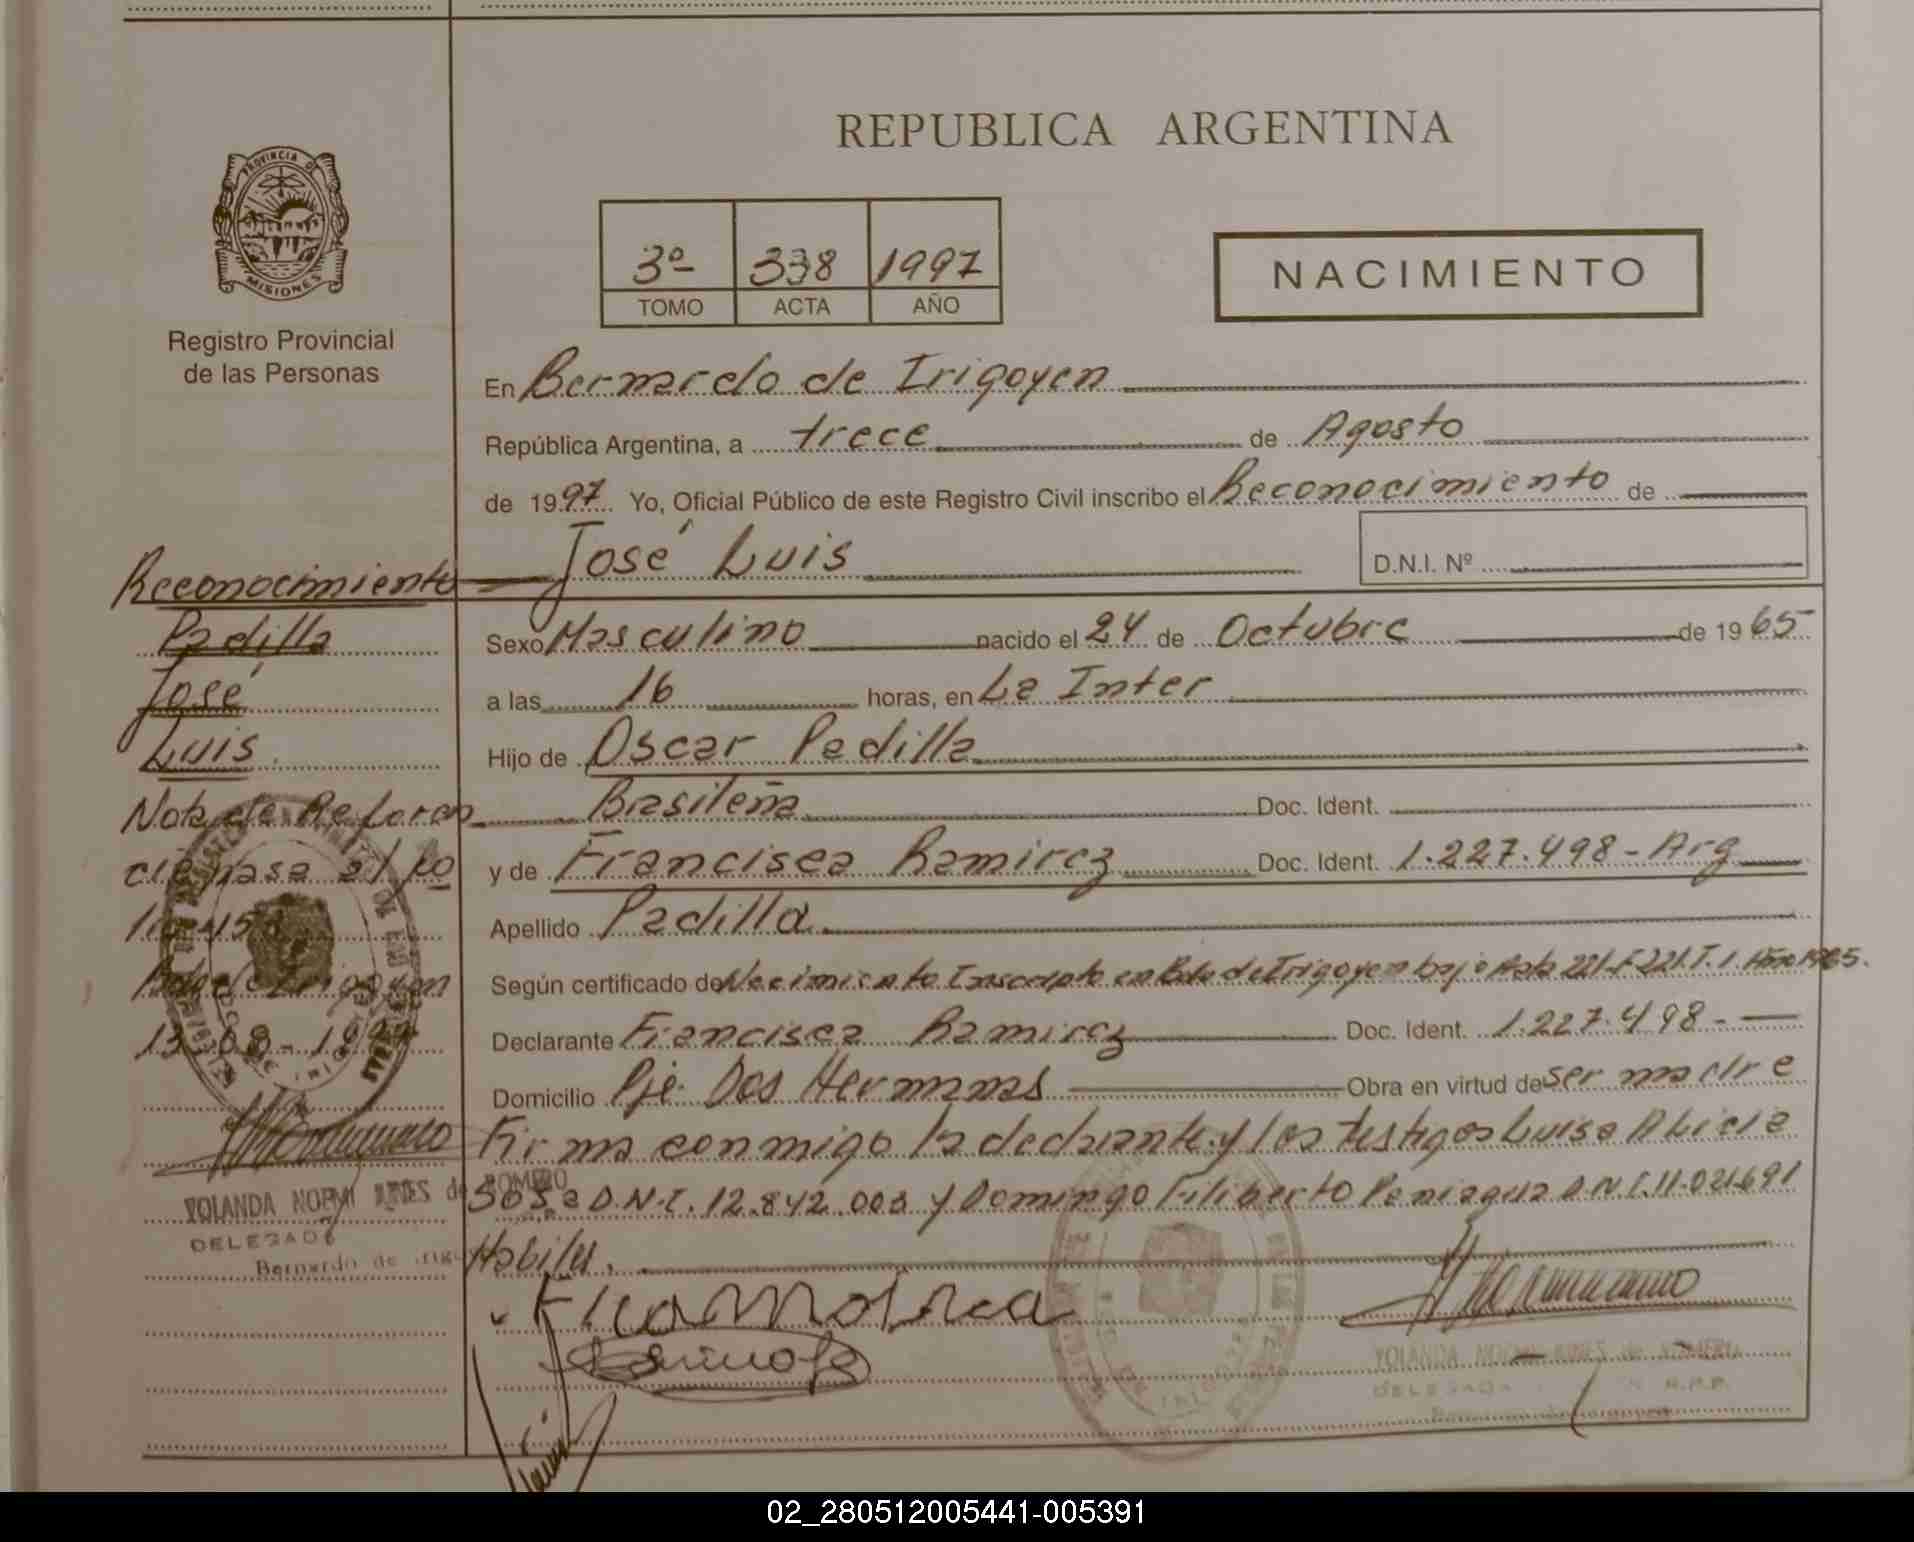 REPUBLICA ARGENTINA
PROVINCIA DE
MISIONES
Registro Provincial
de las Personas
3º 338 1997
TOMO ACTA AÑO
NACIMIENTO
En Bernardo de Irigoyen
República Argentina, a trece de Agosto
de 1997 Yo, Oficial Público de este Registro Civil inscribo el Reconocimiento de
José Luis D.N.I. Nº
Sexo Masculino nacido el 24 de Octubre de 1965
a las 16 horas, en La Inter
Hijo de Oscar Padilla
Brasileña Doc. Ident.
y de Francisca Ramirez Doc. Ident. 1.227.498 - Arg
Apellido Padilla
Según certificado de Nacimiento Inscripto en Bdo de Irigoyen bajo Acta 221-F-221.T.1. Año 1965.
Declarante Francisca Ramirez Doc. Ident. 1.227.498 -
Domicilio Pje Dos Hermanas Obra en virtud de ser madre
Firma conmigo la declarante y los testigos Luisa Alicia
Sosa D.N.I. 12.842.003 y Domingo Filiberto Paniagua D.N.I. 11.021.691
Habiles.
YOLANDA NOEMI de ROMERO
DELEGADA R.P.P.
Reconocimiento
Padilla
José
Luis.
Nota de Referen
cia pasa al
Bdo de Irigoyen
13-08-1997
YOLANDA NOEMI de ROMERO
DELEGADA
Bernardo de Irigoyen
02_280512005441-005391